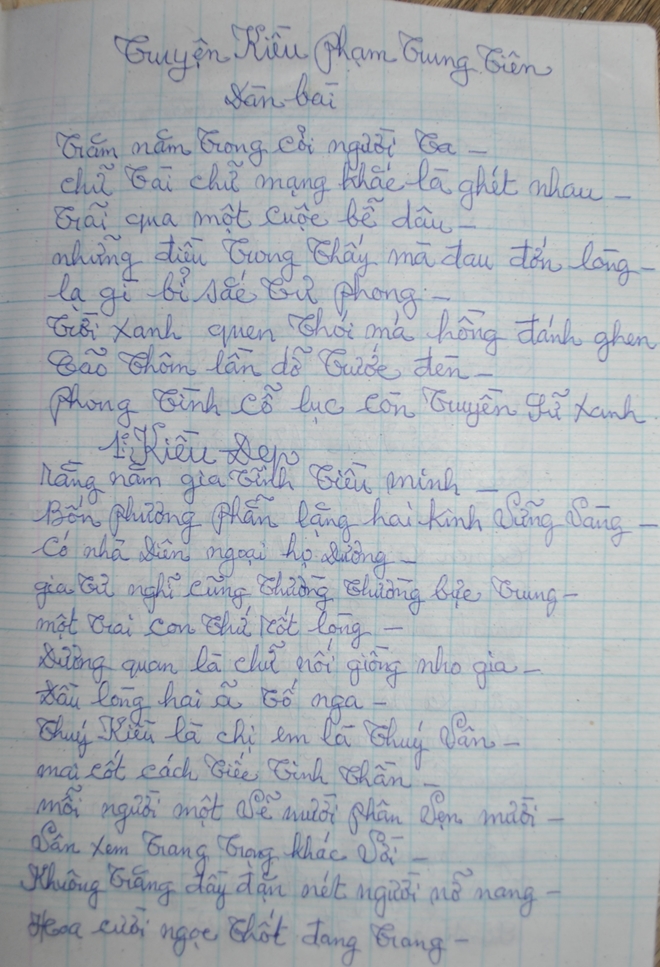 Truyện Kiều Phạm Trung Tiên
Dàn bài
Trăm năm trong cỏi người ta –
chữ tài chữ mạng khắc là ghét nhau –
trãi qua một cuộc bễ dâu –
những điều trong thấy mà đau đớn lòng –
lạ gì bỉ sắc tư phong –
trời xanh quen thói má hồng đánh ghen
cão thơm lần dỡ trước đèn –
phong tình cỗ lục còn truyền sữ xanh
1: Kiều Đẹp
rằng năm gia tĩnh triều minh –
Bốn phương phẵn lặng hai kinh vững vàng –
Có nhà viên ngoại họ Vương –
gia tư nghĩ cũng thường thường bực trung –
một trai con thứ rốt lòng –
Vương quan là chữ nối giồng nho gia –
Đầu lòng hai ã tố nga –
Thuý Kiều là chị em là Thuý Vân –
mai cốt cách tiếc tinh thần –
mỗi người một vẽ mười phân vẹn mười –
Vân xem trang trọng khác vời –
Khuông trăng đầy đặn nét người nỡ nang –
Hoa cười ngọc thốt đang trang –